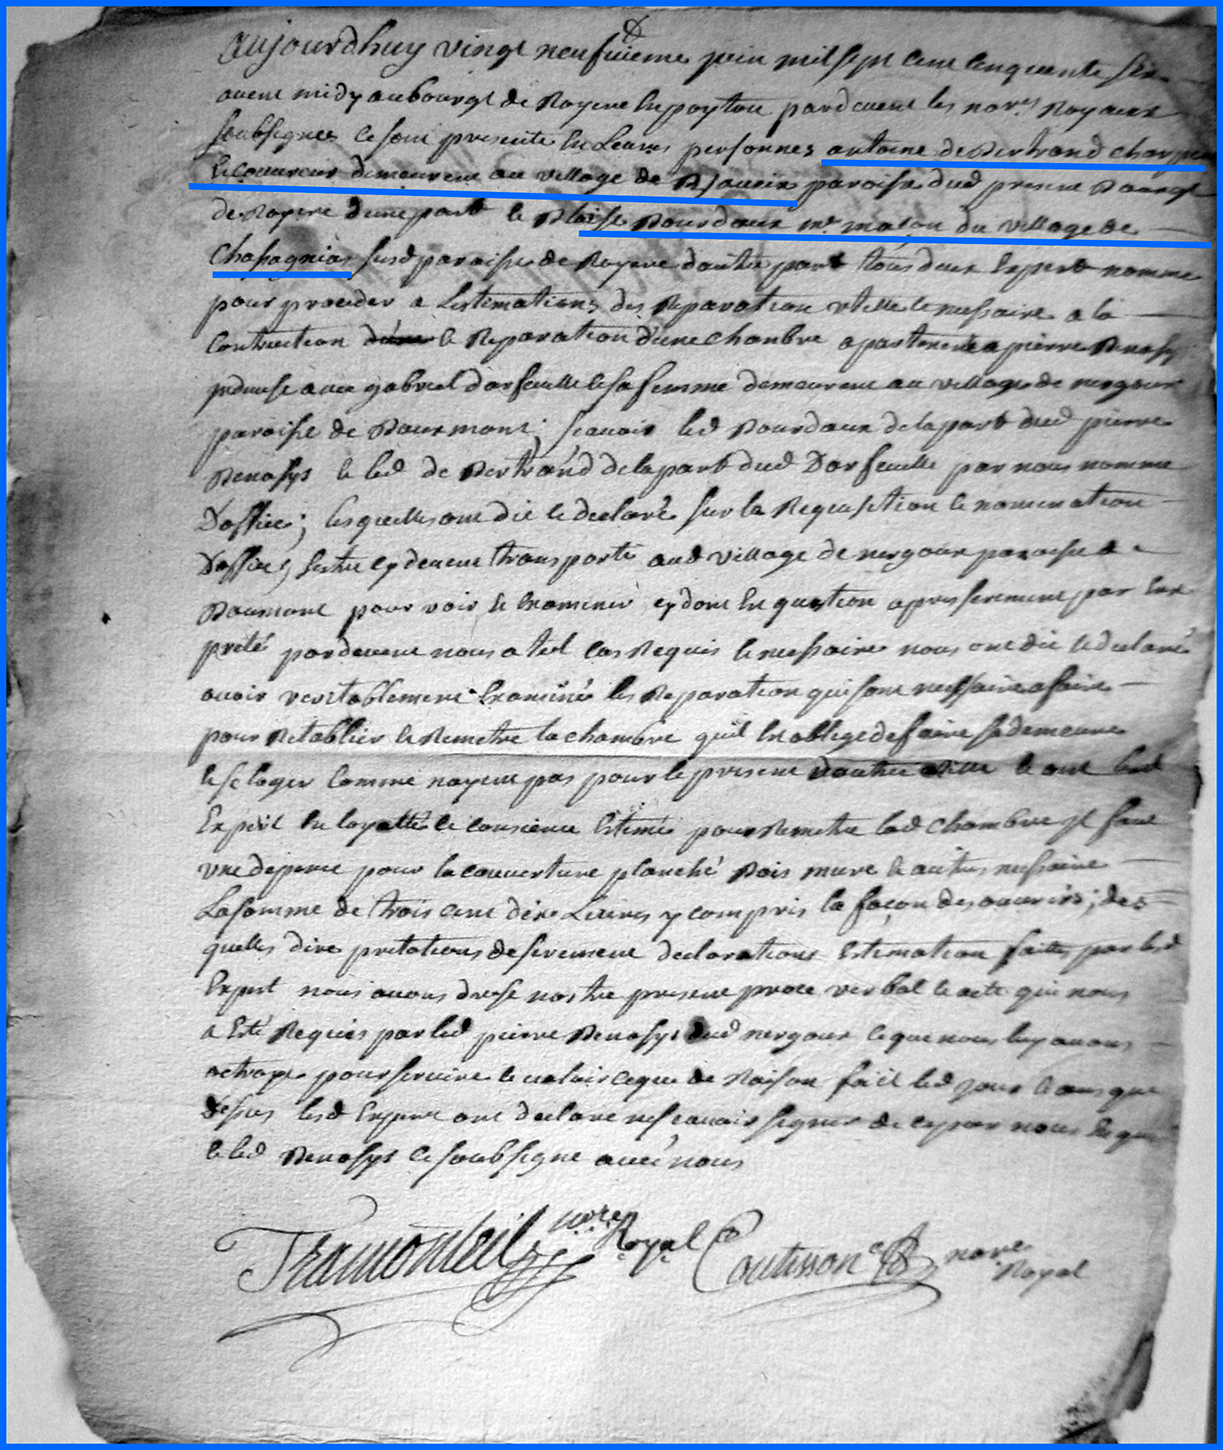 aujourdhuy vingt neufvieme juin mil sept cent cinquante six
avent midy au bourgt de Royere en poytou pardevent les nores Royaux
soubsignes ce sont presente en leurs personnes antoine de Bertrand charpen
et couvreur demeurent au village de paroisse dud present Bourgt
de Royere d'une part et Blaise Bourdaux me mason du village de
Chassagnias susd paroisse de Royere d'autre part tous deux Expert nomme
pour proceder a Lestimations des Reparation utille et nessaire a la
Contruction et Reparation d'une chanbre apartenente a pierre Benassy
indivise avec gabriel d'arfeuille et sa femme demeurent au village de nergoux
paroisse de Bourmont; scavoir led Bourdaux de la part dud pierre
Benassys et led de Bertrand de la part dud Darfeuille par nous nomme
D'office; lesquelles ont dit et declaré sur la Requisition et nomination
D'offices, sestre cy devent transporté aud village de nergoux paroisse de
Bourmont pour voir et Examiner ce dont en question apres serement par eux
preté pardevent nous a tel cas Requis et nessaire nous ont dit et declaré
avoir veritablement Examinés les Reparation qui sont nessaire a faire
pour Retablier et Remetre la chambre quil en obligé de faire sa demeure
et se loger comme nayent pas pour le present d'autre et ont led
Expert en loyauté et consience Estimé pour Remetre lad chambre il faut
une depence pour la couverture planché Bois mure et autres nessaire
La somme de trois cent dix Livres y compris la façon des ouvriés; des
quelles dire pretations de serement declarations Estimation faittes par lesd
Expert nous avons dressé nostre present proce verbal et acte qui nous
a Esté Requis par led pierre Benassys dud nergoux ce que nous luy avons
octroyé pour servire et valoir ce que de Raison fait led jour et ans que
Dessus lesd Expert ont declare ne scavoir signer de ce par nous Enquis
et led Benassys ce soubsigne avec nous
Tramonteil nore Royal Coutisson nore
Royal